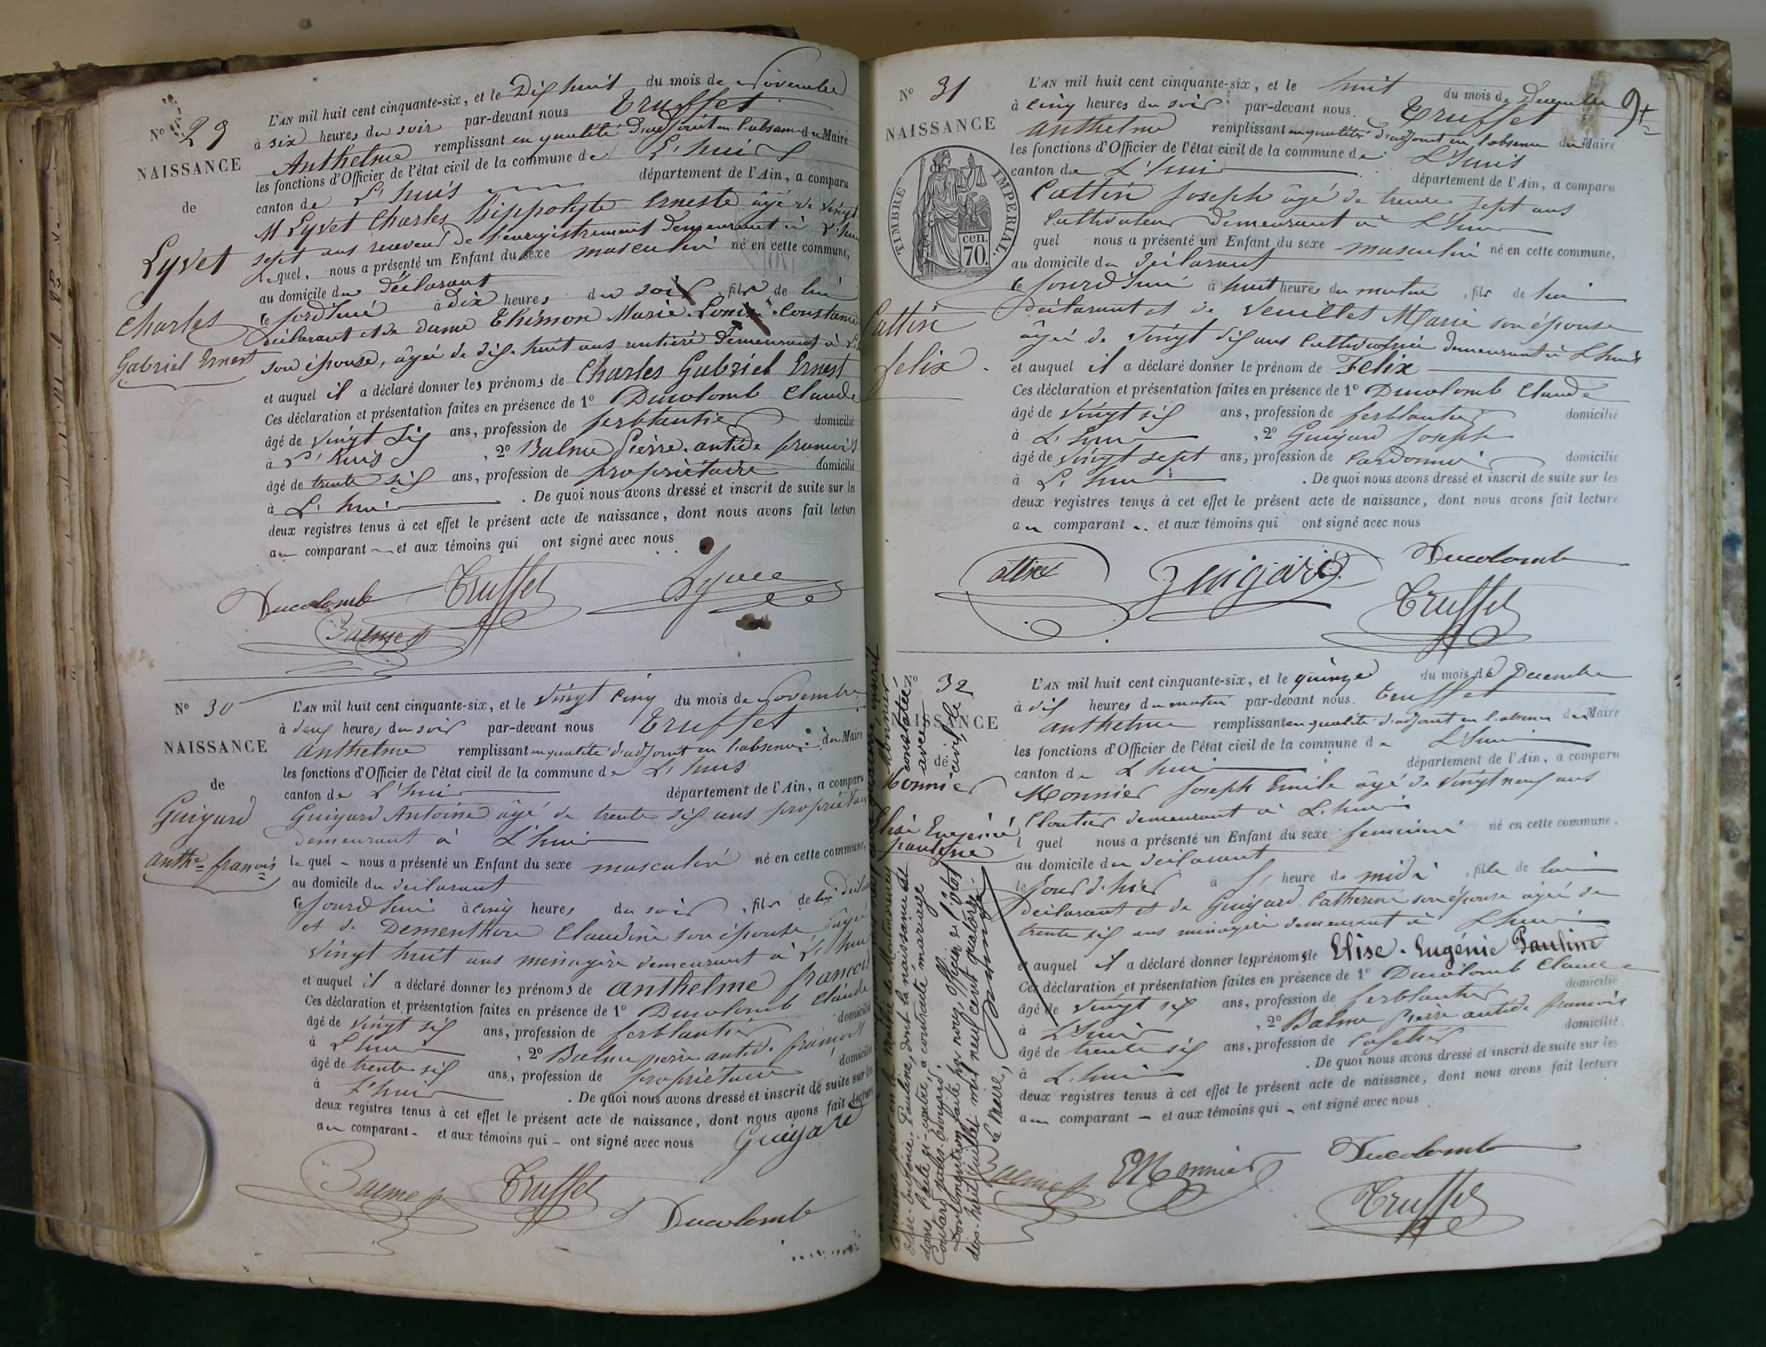 N° 29
NAISSANCE
de
Lyvet
Charles
Gabriel Ernest
L'AN mil huit cent cinquante-six, et le Dix huit du mois de Novembre
à six heures du soir par-devant nous Truffet
Anthelme remplissant en qualité d'adjoint en l'absence du Maire
les fonctions d'Officier de l'état civil de la commune de L'huis
canton de L'huis département de l'Ain, a comparu
M Lyvet Charles Hippolyte Erneste âgé de vingt
sept ans receveur de l'enregistrement demeurant à L'huis
Lequel, nous a présenté un Enfant du sexe masculin né en cette commune,
au domicile du déclarant
ce jourd'hui à Dix heures du soir, fils de lui
déclarant et de dame Thémon Marie Constance
son épouse, âgée de dix-huit ans rentière demeurant à
et auquel il a déclaré donner les prénoms de Charles Gabriel Ernest
Ces déclaration et présentation faites en présence de 1° Ducolomb Claude
âgé de vingt six ans, profession de ferblantier domicilié
à L'huis, 2° Balme Pierre antide françois
âgé de trente six ans, profession de propriétaire domicilié
à L'huis. De quoi nous avons dressé et inscrit de suite sur les
deux registres tenus à cet effet le présent acte de naissance, dont nous avons fait lecture
au comparant et aux témoins qui ont signé avec nous
Ducolomb Truffet Lyvet
Balme p
N° 30
NAISSANCE
de
Guigard
Anthe françois
L'AN mil huit cent cinquante-six, et le vingt cinq du mois de Novembre
à deux heures du soir par-devant nous Truffet
Anthelme remplissant en qualité d'adjoint en l'absence du Maire
les fonctions d'Officier de l'état civil de la commune de L'huis
canton de L'huis département de l'Ain, a comparu
Guigard Antoine âgé de trente six ans propriétaire
demeurant à L'huis
le quel - nous a présenté un Enfant du sexe masculin né en cette commune,
au domicile du déclarant
ce jourd'hui à cinq heures du soir, fils de lui déclarant
et de Dementhon Claudine son épouse âgée
vingt huit ans menagère demeurant à L'huis
et auquel il a déclaré donner les prénoms de anthelme françois
Ces déclaration et présentation faites en présence de 1° Ducolomb Claude
âgé de vingt six ans, profession de ferblantier domicilié
à L'huis, 2° Balme pierre antide françois
âgé de trente six ans, profession de propriétaire domicilié
à L'huis. De quoi nous avons dressé et inscrit de suite sur les
deux registres tenus à cet effet le présent acte de naissance, dont nous avons fait lecture
au comparant - et aux témoins qui - ont signé avec nous Guigard
Balme p Truffet Ducolomb
N° 31
NAISSANCE
TIMBRE IMPÉRIAL
70 cen.
Cattin
felix
L'AN mil huit cent cinquante-six, et le huit du mois de Decembre
à cinq heures du soir par-devant nous Truffet
anthelme remplissant en qualité d'adjoint en l'absence du Maire
les fonctions d'Officier de l'état civil de la commune de L'huis
canton de L'huis département de l'Ain, a comparu
Cattin Joseph âgé de trente sept ans
Cultivateur demeurant à L'huis
quel nous a présenté un Enfant du sexe masculin né en cette commune,
au domicile du déclarant
ce jourd'hui à huit heures du matin, fils de lui
déclarant et de Veuillet Marie son épouse
âgée de vingt six ans Cultivatrice demeurant à L'huis
et auquel il a déclaré donner le prénom de Félix
Ces déclaration et présentation faites en présence de 1° Ducolomb Claude
âgé de vingt six ans, profession de ferblantier domicilié
à L'huis, 2° Guigard Joseph
âgé de vingt sept ans, profession de Cordonnier domicilié
à L'huis. De quoi nous avons dressé et inscrit de suite sur les
deux registres tenus à cet effet le présent acte de naissance, dont nous avons fait lecture
au comparant et aux témoins qui ont signé avec nous
Cattin Guigard Ducolomb
Truffet
N° 32
NAISSANCE
de
Monnier
Elise Eugénie
Pauline
L'AN mil huit cent cinquante-six, et le quinze du mois de Decembre
à dix heures du matin par-devant nous Truffet
anthelme remplissant en qualité d'adjoint en l'absence du Maire
les fonctions d'Officier de l'état civil de la commune de L'huis
canton de L'huis département de l'Ain, a comparu
Monnier Joseph Emile âgé de vingt neuf ans
Cloutier demeurant à L'huis
l quel nous a présenté un Enfant du sexe feminin né en cette commune,
au domicile du déclarant
le jour d'hier à heure de midi, fille de lui
déclarant et de Guigard Catherine son épouse âgée de
trente six ans menagère demeurant à L'huis
et auquel il a déclaré donner les prénoms de Elise - Eugénie Pauline
Ces déclaration et présentation faites en présence de 1° Ducolomb Claude
âgé de vingt six ans, profession de ferblantier domicilié
à L'huis, 2° Balme Pierre antide françois
âgé de trente six ans, profession de Cafetier domicilié
à L'huis. De quoi nous avons dressé et inscrit de suite sur les
deux registres tenus à cet effet le présent acte de naissance, dont nous avons fait lecture
au comparant - et aux témoins qui - ont signé avec nous
Balme p EMonnier Ducolomb
Truffet
Elise-Eugénie-Pauline, dont la naissance est constatée
dans l'acte ci-contre, a contracté mariage avec
Mention faite par nous, officier de l'état civil, le
dix-huit juillet mil neuf cent quatorze.
Le Maire,